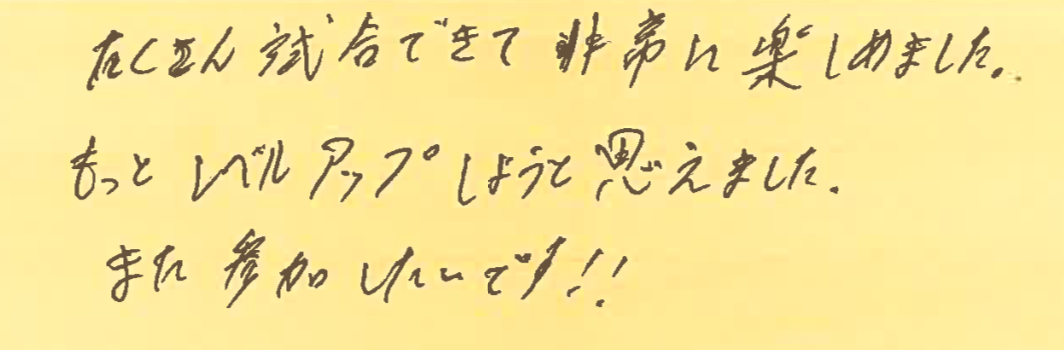 たくさん試合できて非常に楽しめました。
もっとレベルアップしようと思えました。
また参加したいです!!